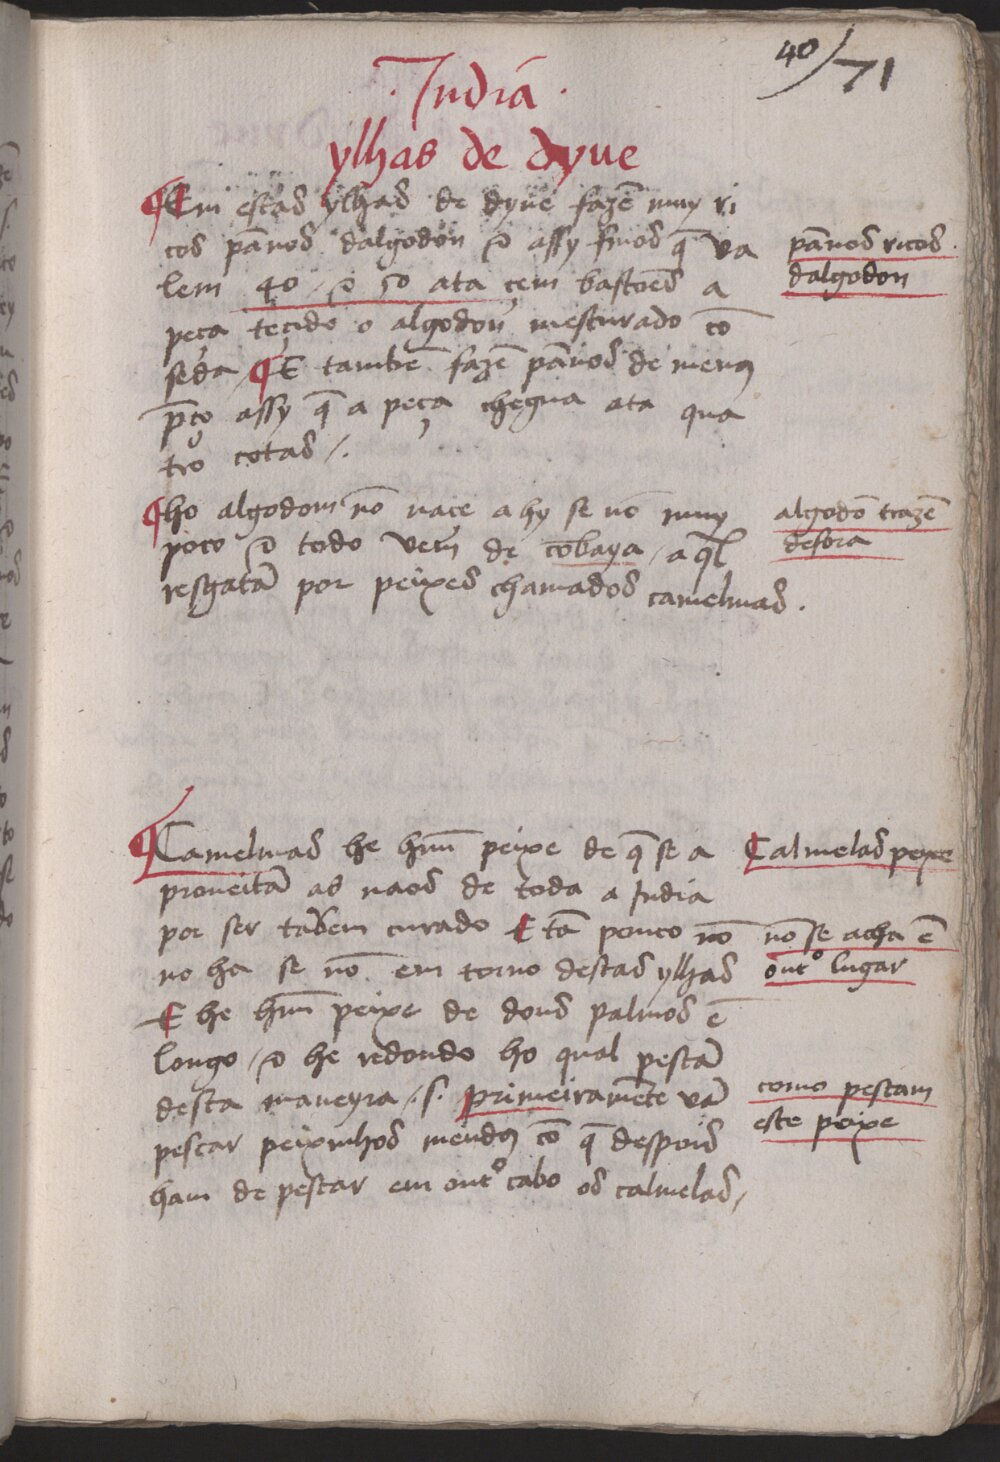 40/71
India
ylhas de dyue
¶ Em estas ylhas de dyue fazē muy ri
cos pānos dalgodon & assy finos q̄ va
lem 40 & 50 ata çem bastoēs a
peça teçido o algodon mesturado cō
seda / ¶ E tambē fazē pānos de menos
pço assy q̄ a peça chegua ata qua
tro cotas /.
panos ricos
dalgodon
¶ ho algodom nō naçe ahy se nō muy
poco & todo vem de cōbaya / a q̄l
resgatā por peixes chamados camelmas .
algodō trazē
desora
¶ Camelmas he hum̄ peixe de q̄ se a
proueitā as naos de toda a India
por ser tābem curado E tā pouco nō
no ha se nō em torno destas ylhas
E he hum̄ peixe de dous palmos ē
longo / & he redondo ho qual pescā
desta maneyra /. s. primeiramēte vā
pescar peixinhos meudos cō q̄ despois
ham de pescar em outº cabo os calmelas /
Calmelas peixe
nō se acha ē
outº lugar
como pescam
este peixe